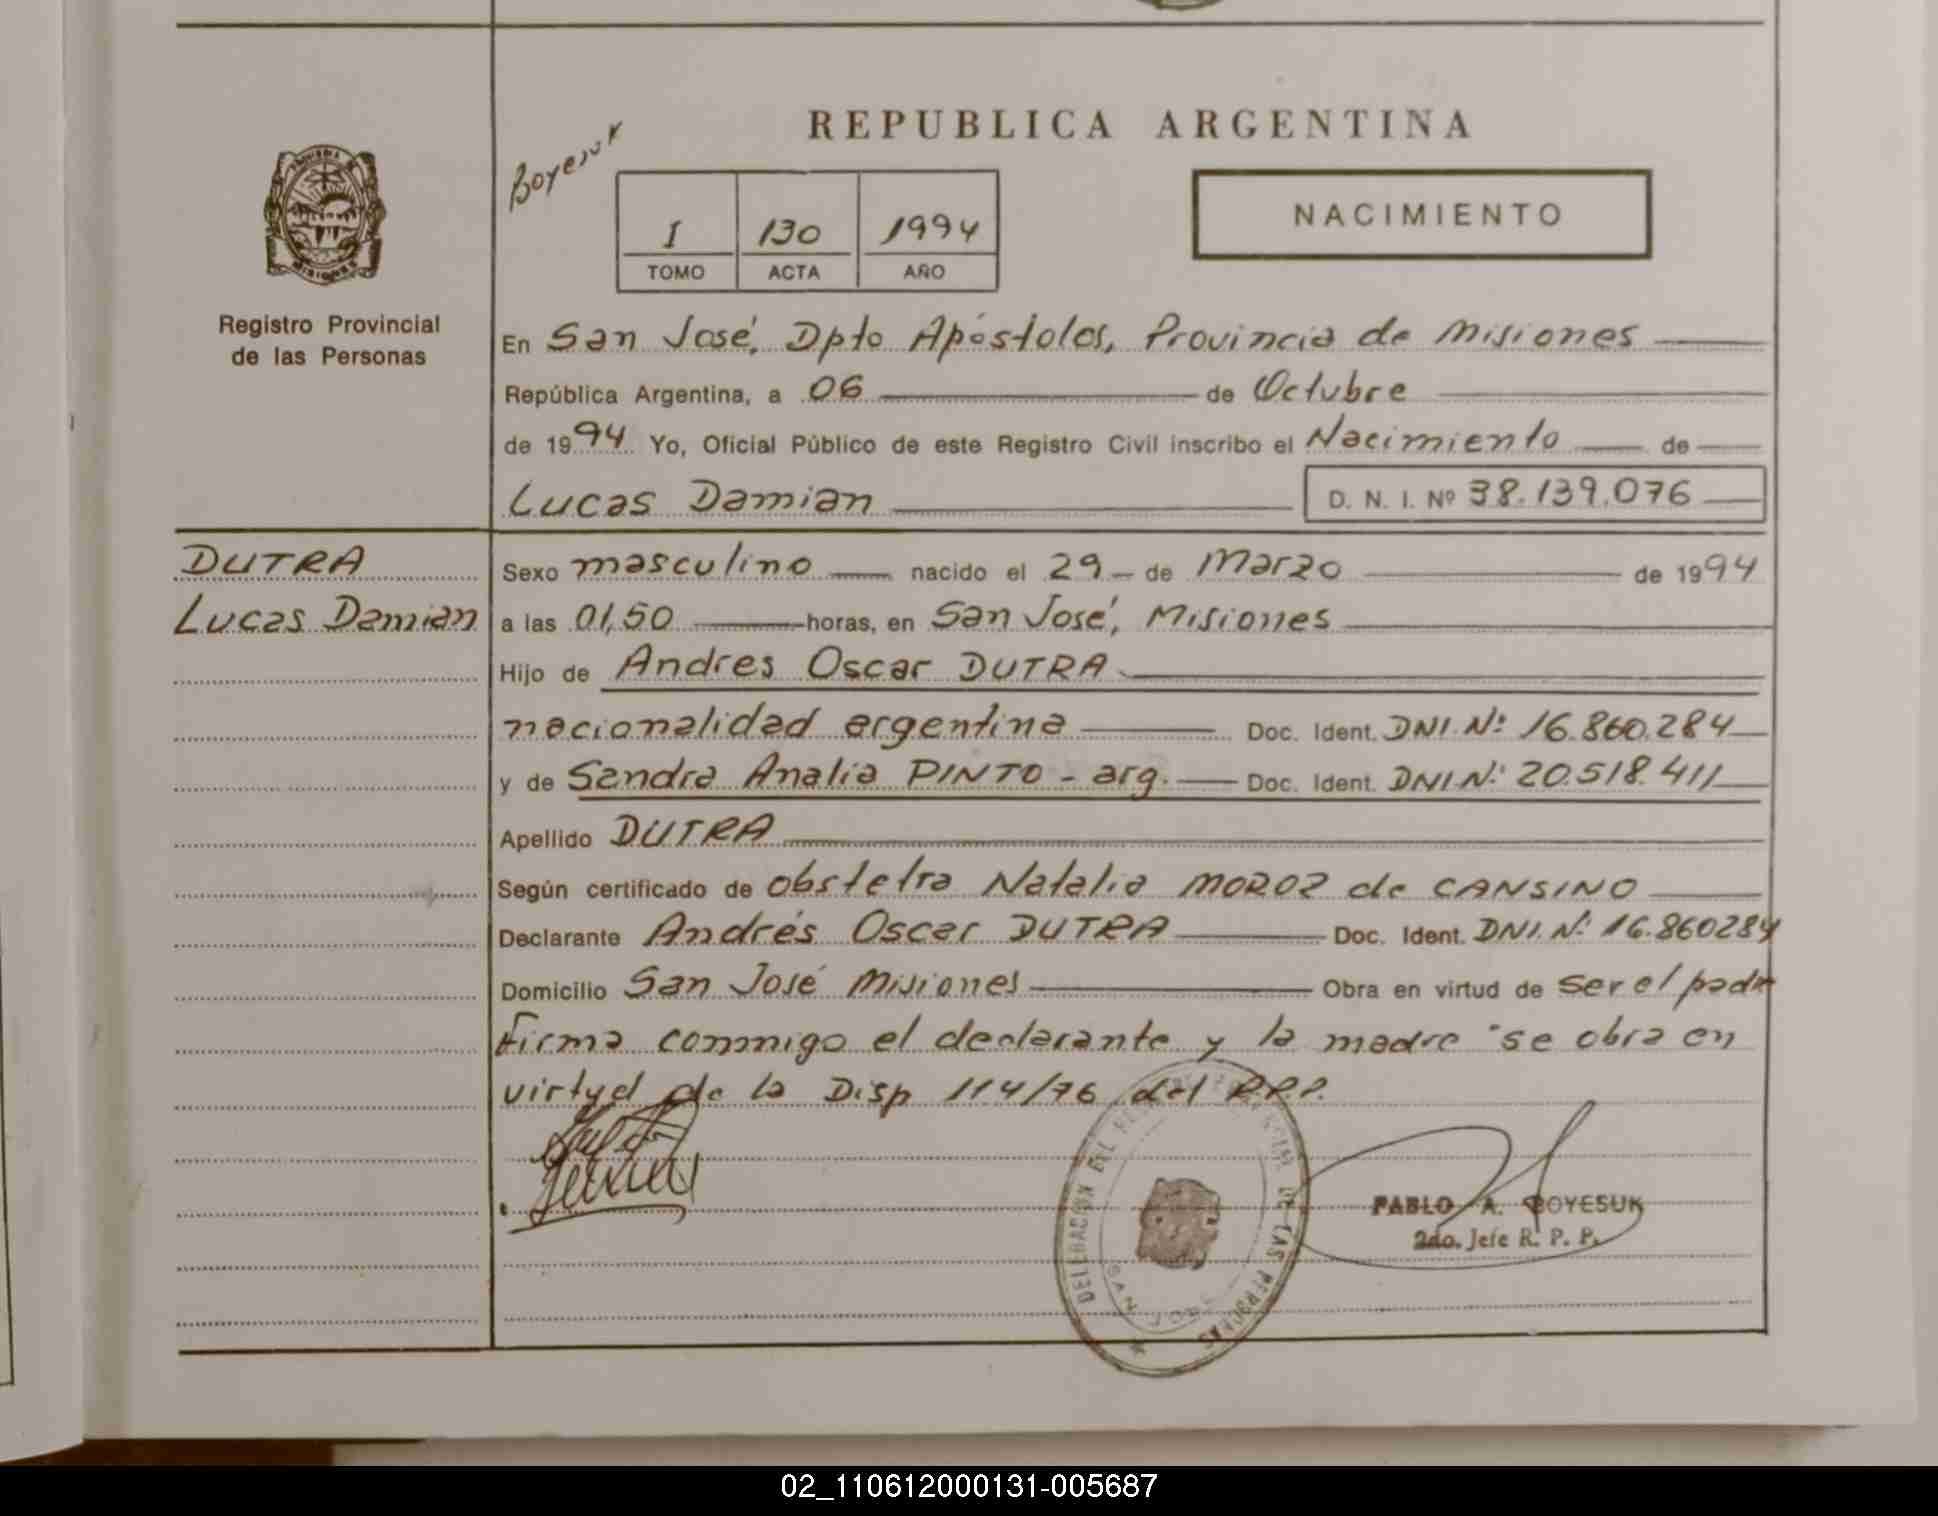 REPUBLICA ARGENTINA
Boyesuk
I 130 1994
TOMO ACTA AÑO
NACIMIENTO
Registro Provincial
de las Personas
En San José, Dpto Apóstoles, Provincia de Misiones
República Argentina, a 06 de Octubre
de 1994 Yo, Oficial Público de este Registro Civil inscribo el Nacimiento de
Lucas Damian D. N. I. Nº 38.139.076
DUTRA
Lucas Damian
Sexo masculino nacido el 29 de Marzo de 1994
a las 01,50 horas, en San José, Misiones
Hijo de Andres Oscar DUTRA
nacionalidad argentina Doc. Ident. DNI.Nº 16.860.284
y de Sandra Analia PINTO - arg. Doc. Ident. DNI.Nº 20.518.411
Apellido DUTRA
Según certificado de obstetra Natalia MOROZ de CANSINO
Declarante Andrés Oscar DUTRA Doc. Ident. DNI.Nº 16.860284
Domicilio San José Misiones Obra en virtud de ser el padre
Firma conmigo el declarante y la madre se obra en
virtud de la Disp 114/76 del R.P.P.
DELEGACION DEL DE LAS PERSONAS
SAN JOSE
PABLO A. BOYESUK
2do. Jefe R. P. P.
02_110612000131-005687